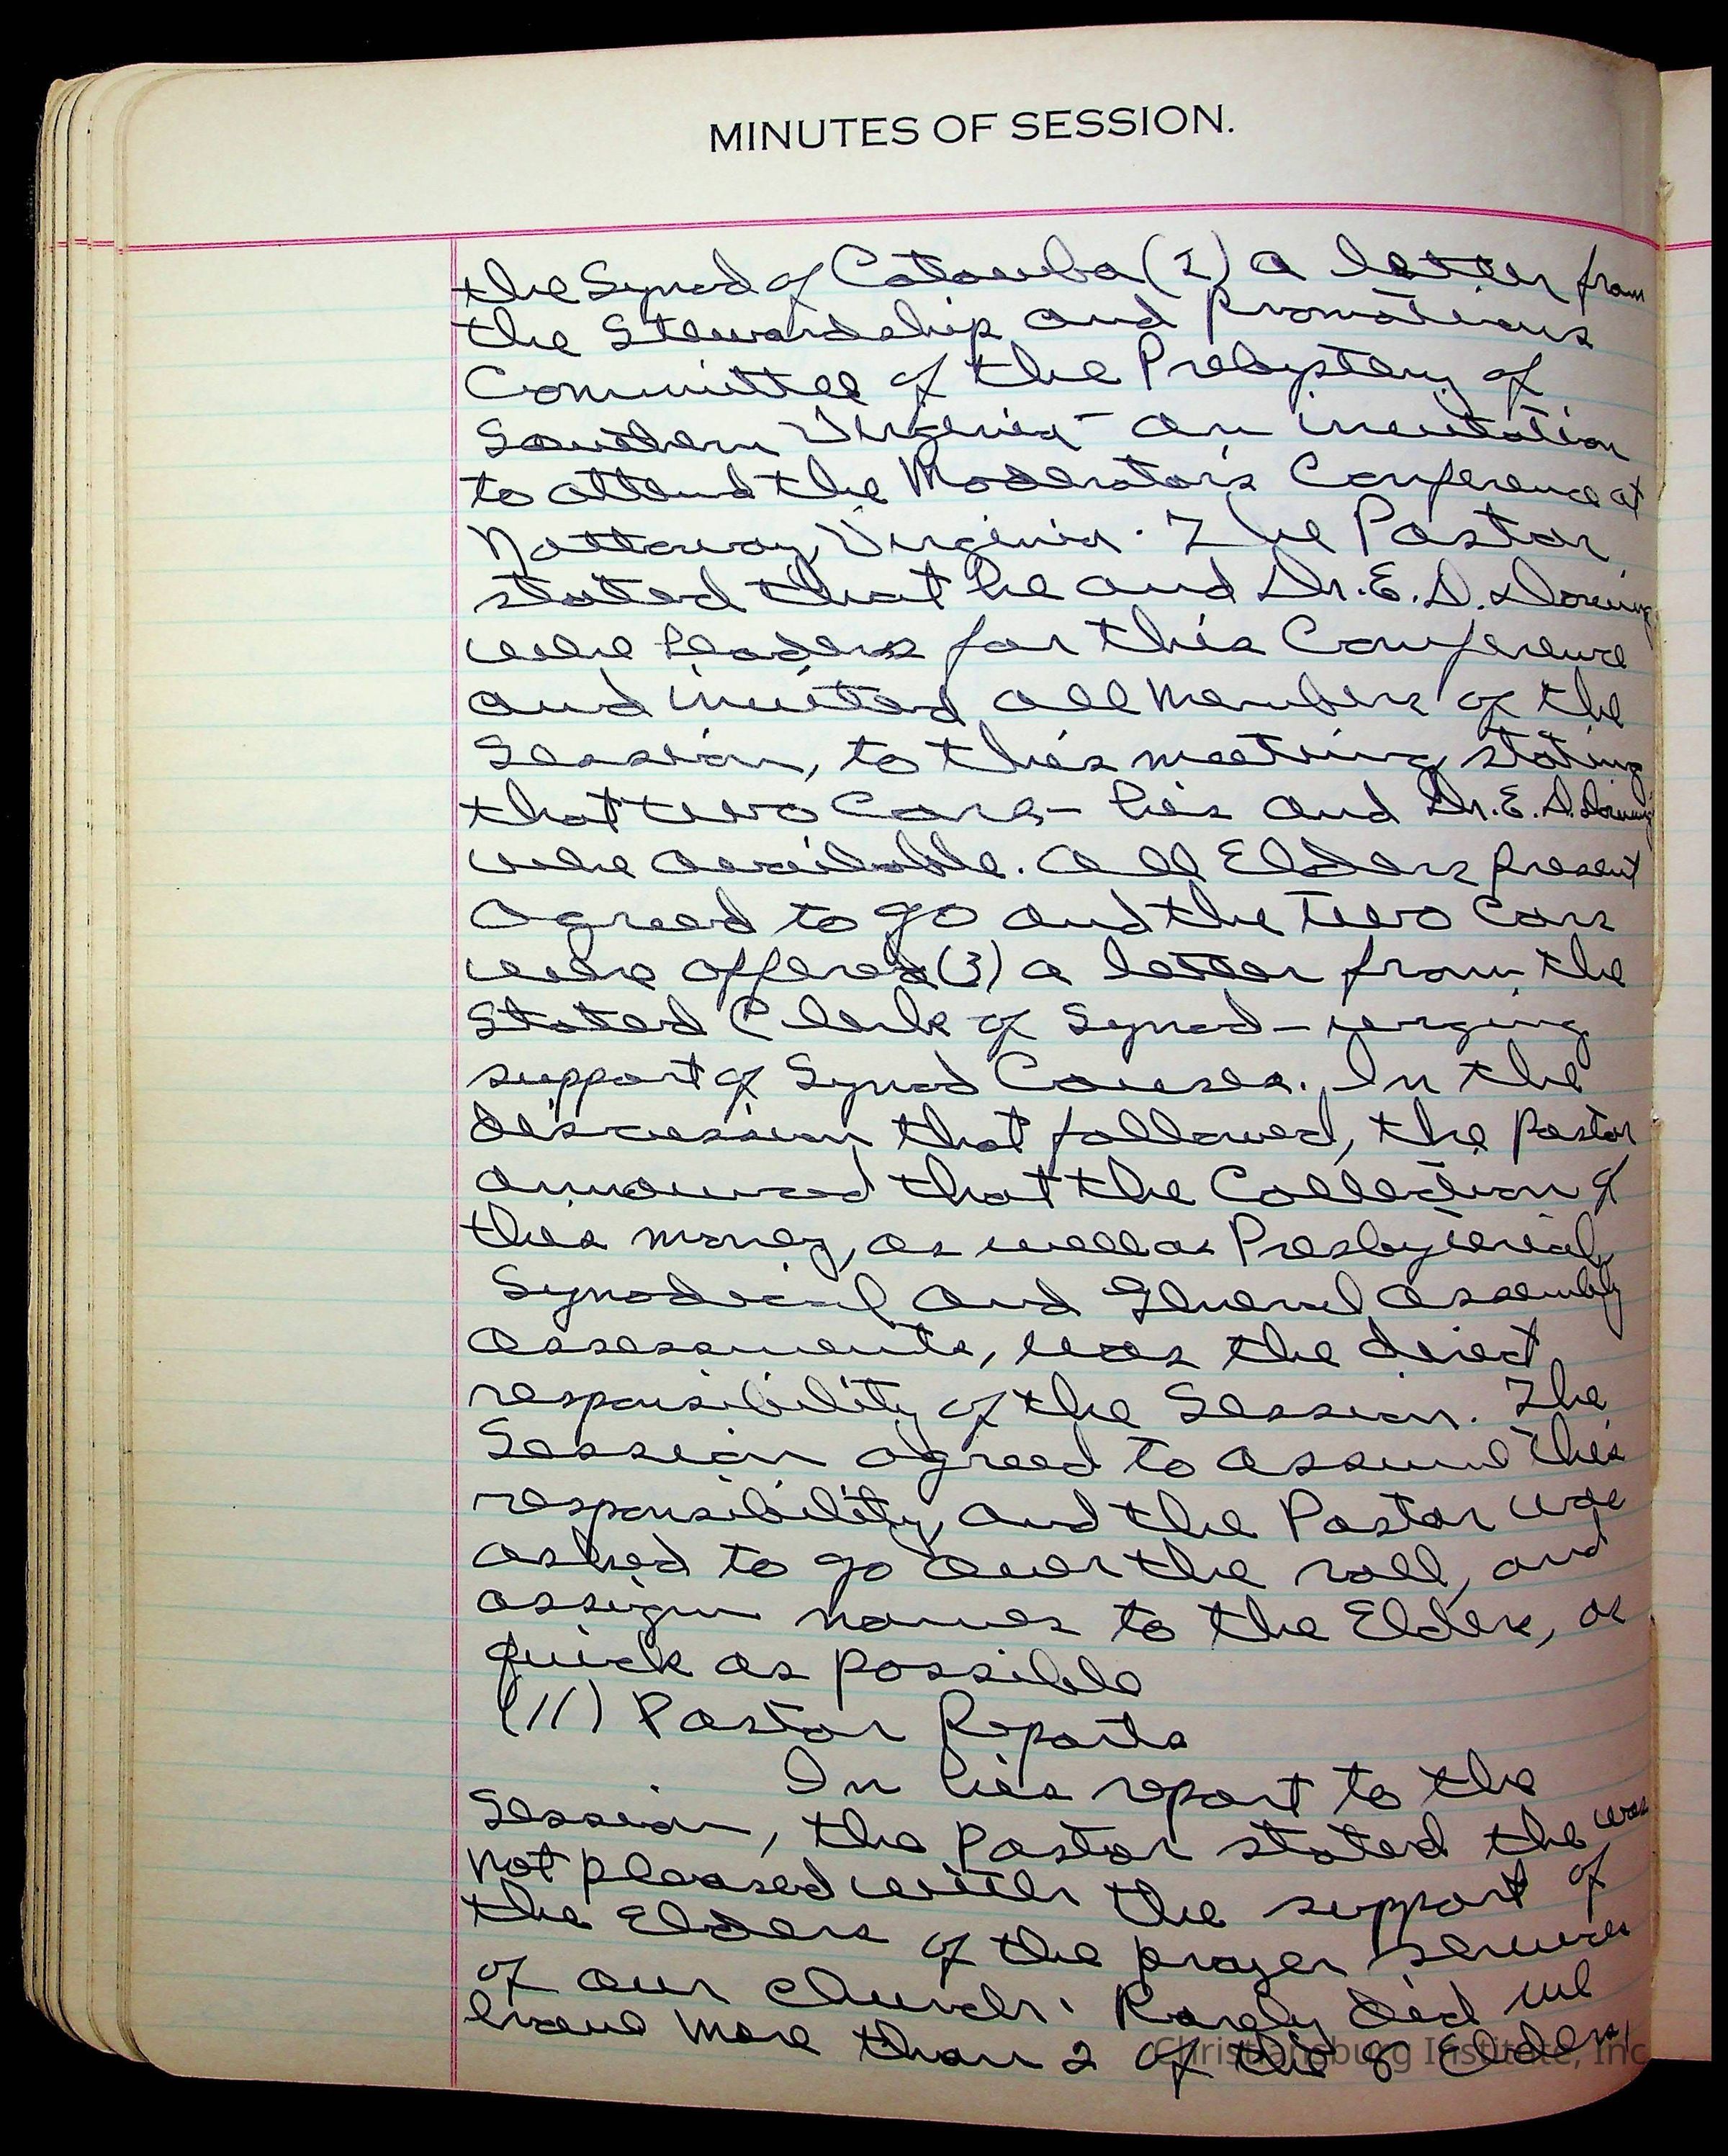 MINUTES OF SESSION.
the Synod of Catawba (2) a letter from
the Stewardship and Promotions
Committee of the Presbytery of
Southern Virginia - an invitation
to attend the Moderator's Conference at
Nottoway, Virginia. The Pastor
stated that he and Dr. E. D. Downing
were leaders for this Conference
and invited all members of the
Session, to this meeting, stating
that two cars - his and Dr. E. D. Downing
were available. All Elders present
agreed to go and the two cars
were offered (3) a letter from the
Stated Clerk of Synod - urging
support of Synod Causes. In the
discussion that followed, the pastor
announced that the Collection of
this money, as well as Presbyterial,
Synodical and General Assembly
assessments, was the direct
responsibility of the Session. The
Session agreed to assume this
responsibility, and the Pastor was
asked to go over the roll, and
assign names to the Elders, as
quick as possible
(11) Pastor Reports
In his report to the
Session, the pastor stated the was
not pleased with the support of
the Elders of the prayer services
of our church. Rarely did we
have more than 2 of the 8 Elders,
Christiansburg Institute, Inc